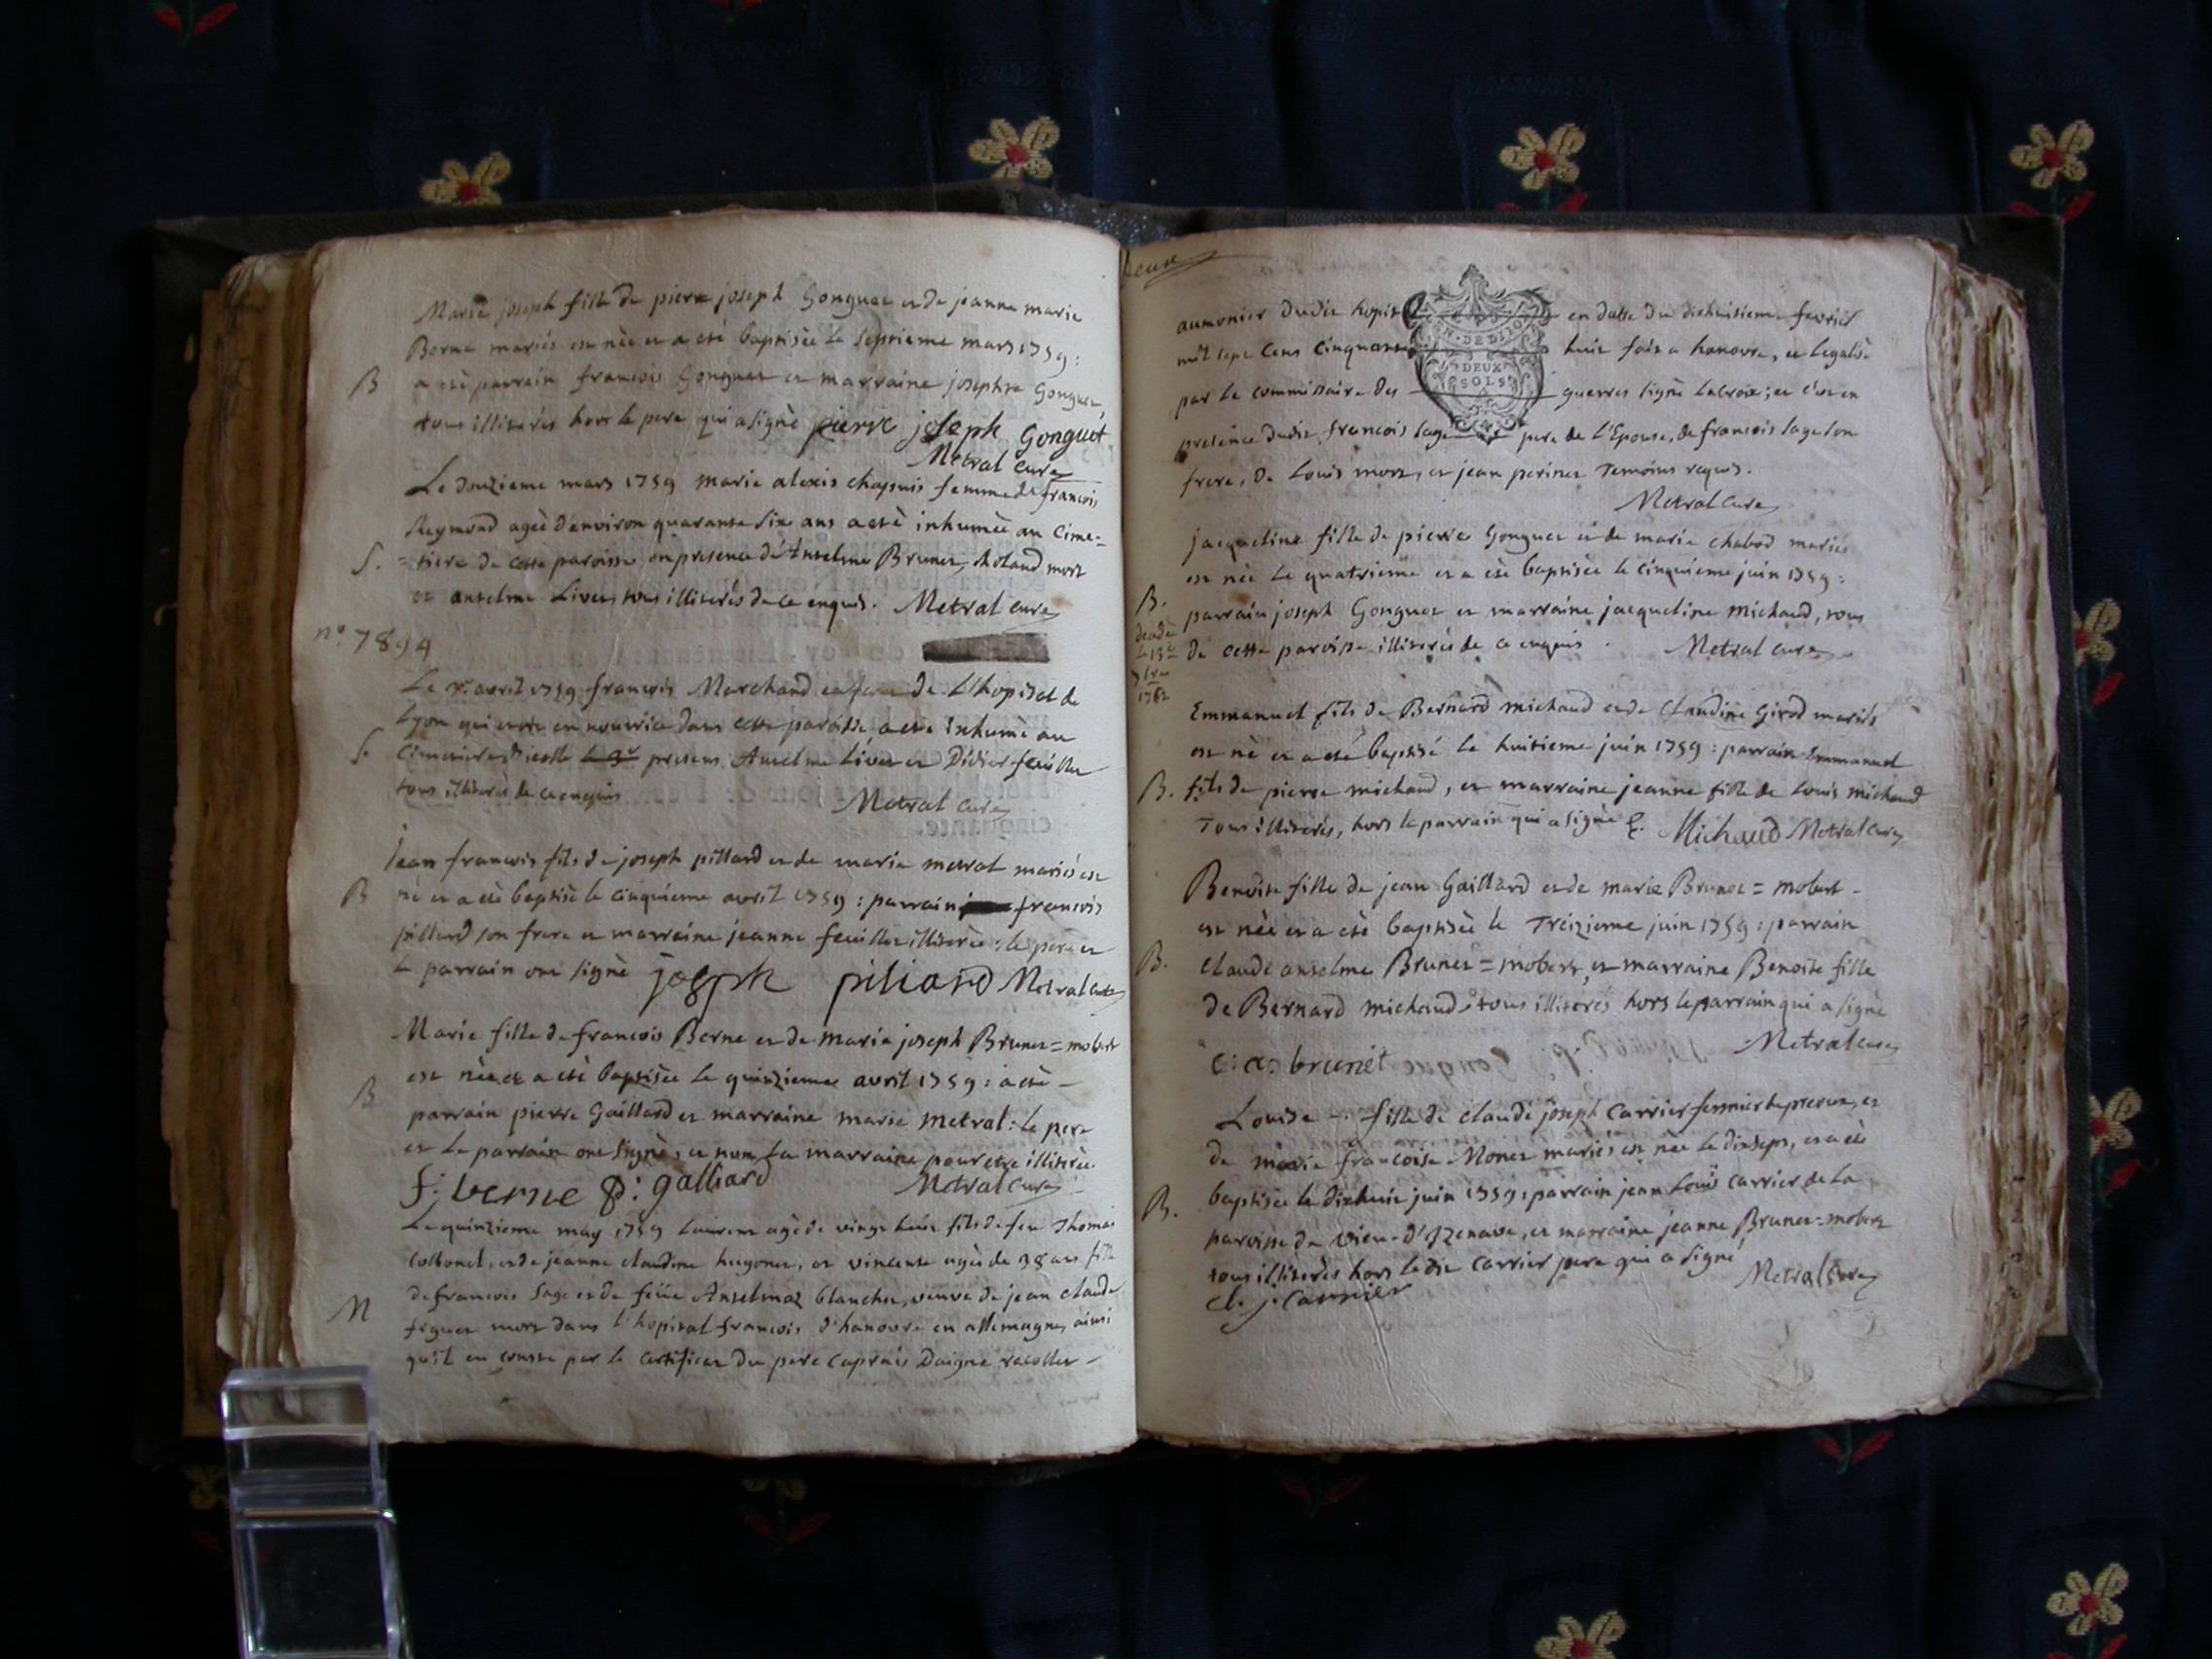 Marie joseph fille de pierre joseph Gonguet et de jeanne marie
Berne mariés est née et a eté baptisée le septieme mars 1759 :
B a eté parrain francois Gonguet et marraine josephte Gonguet,
tous illiterés hors le pere qui a signé pierre joseph Gonguet
Metral curé
Le douzieme mars 1759 marie alexis chapuis femme de francois
Reymond ageé d'environ quarante six ans a eté inhumée au cime=
S. =tiere de cette paroisse en presence d'Anselme Brunet, Roland mort
et anselme Livet, tous illiterés de ce enquis. Metral curé
n.º 7894
Le avril 1759 francois Marchand enfant de L'hopital de
Lyon qui etoit en nourrice dans cette paroisse a eté inhumé au
S. cimetiere d'icelle presens Anselme Livet et Didier feuillet
tous illiterés de ce enquis Metral curé
Jean francois fils de joseph pilliard et de marie metral mariés est
B né et a eté baptisé le cinquieme avril 1759 : parrain francois
pilliard son frere et marraine jeanne feuillet illiterée : le pere et
le parrain ont signé joseph piliard Metral curé
Marie fille de francois Berne et de marie joseph Brunet = mobert
est née et a eté baptisée le quinzieme avril 1759 : a eté -
B parrain pierre Gaillard et marraine marie metral : le pere
et le parrain ont signé, et non la marraine pour etre illiterée
f: berne p: galliard Metral curé
Le quinzieme may 1759 Laurent agé de vingt huit fils de feu Thomas
et de jeanne claudine hugonet, et vincente agée de 38 ans fille
de francois Sage et de feüe Anselmaz blanchet, veuve de jean claude
M mort dans l'hopital francois d'hanovre en allemagne, ainsi
qu'il en conste par le certificat du pere Caprais Daigne recollet -
aumonier dudit hopital en datte du dixhuitieme fevrier
mil sept cens cinquante huit fait a hanovre, et legalisé
EN. DE DIJON
DEUX
SOLS
par le commissaire des guerres signé Lacroix ; et c'est en
presence dudit francois Sage pere de l'Epouse, de francois Sage son
frere, de Louis mort, et jean perinet Temoins requis.
Metral curé
jacqueline fille de pierre Gonguet et de marie chabod mariés
est née le quatrieme et a eté baptisée le cinquieme juin 1759 :
B. parrain joseph Gonguet et marraine jacqueline michaud, tous
de cette paroisse illiterés de ce enquis. Metral curé
1762
Emmanuel fils de Bernard michaud et de Claudine Girod mariés
est né et a eté baptisé le huitieme juin 1759 : parrain Emmanuel
B. fils de pierre michaud, et marraine jeanne fille de Louis michaud
Tous illiterés, hors le parrain qui a signé E. Michaud Metral curé
Benoite fille de jean Gaillard et de marie Brunet = mobert -
est née et a eté baptisée le Treizieme juin 1759 : parrain
B. claude anselme Brunet = mobert, et marraine Benoite fille
de Bernard michaud, tous illiterés hors le parrain qui a signé
c: a: brunet Metral curé
Louise -. fille de claude joseph Carrier fermier et
de marie francoise Monet mariés est née le dixsept, et a eté
B. baptisée le dixhuit juin 1759 : parrain jean Louis Carrier de la
paroisse de vieu-d'Izenave, et marraine jeanne Brunet = mobert
tous illiterés hors ledit Carrier pere qui a signé Metral curé
cl. j. Carrier